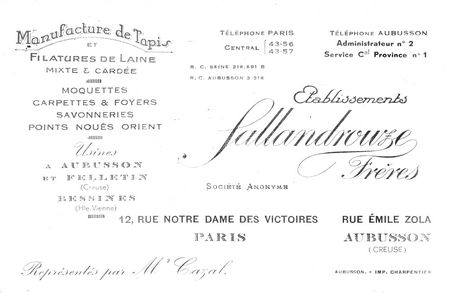 Manufacture de Tapis
ET
FILATURES DE LAINE
MIXTE & CARDÉE
MOQUETTES
CARPETTES & FOYERS
SAVONNERIES
POINTS NOUÉS ORIENT
Usines
A AUBUSSON
ET FELLETIN
(Creuse)
BESSINES
(Hte. Vienne)
TÉLÉPHONE PARIS
CENTRAL 43-56
43-57
R. C. SEINE 218.891 B
R. C. AUBUSSON 2.218
TÉLÉPHONE AUBUSSON
Administrateur n° 2
Service Cal Province n° 1
Etablissements
Sallandrouze
Frères
SOCIÉTÉ ANONYME
12, RUE NOTRE DAME DES VICTOIRES
PARIS
RUE ÉMILE ZOLA
AUBUSSON
(CREUSE)
Représentés par Mr Cazal.
AUBUSSON. - IMP. CHARPENTIER